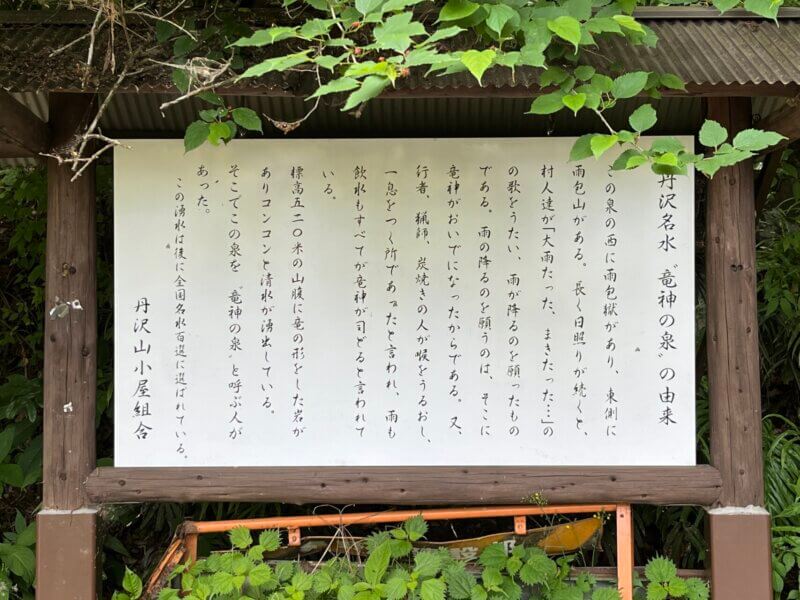 丹沢名水〝竜神の泉〟の由来
この泉の西に雨包獄があり、東側に
雨包山がある。長く日照りが続くと、
村人達が「大雨たった、まきたった…」の
の歌をうたい、雨が降るのを願ったもの
である。雨の降るのを願うのは、そこに
竜神がおいでになったからである。又、
行者、猟師、炭焼きの人が喉をうるおし、
一息をつく所であったと言われ、雨も
飲水もすべてが竜神が司どると言われて
いる。
標高五二〇米の山腹に竜の形をした岩が
ありコンコンと清水が湧出している。
そこでこの泉を〝竜神の泉〟と呼ぶ人が
あった。
この湧水は後に全国名水百選に選ばれている。
丹沢山小屋組合